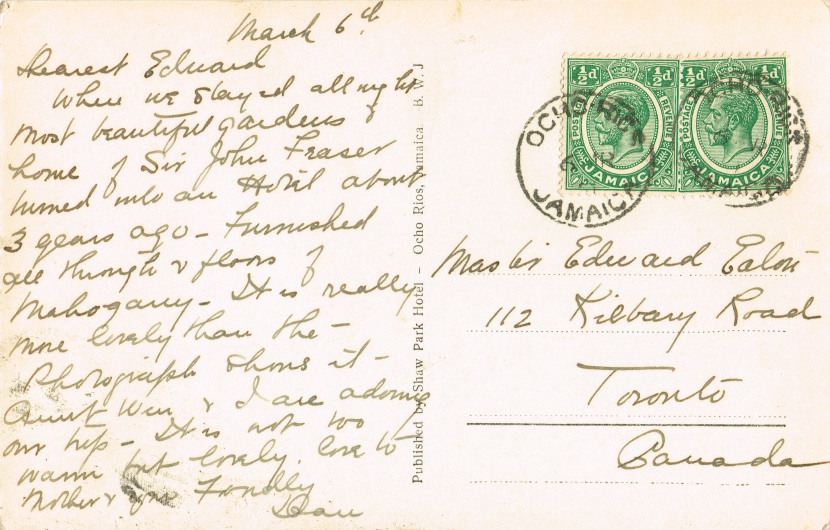 March 6th
Dearest Edward
Where we stayed all night
most beautiful gardens &
home of Sir John Fraser
turned into an Hotel about
3 years ago - Furnished
all through & floors of
Mahogany - It is really
more lovely than the -
Photograph shows it -
Aunt Win & I are adoring
our trip - It is not too
warm but lovely. Love to
Mother & you Fondly
Published by Shaw Park Hotel - Ocho Rios, Jamaica B. W. J
½d ½d ½d ½d
POSTAGE REVENUE POSTAGE REVENUE
JAMAICA JAMAICA
OCHO RIOS
JAMAICA
Master Edward Eaton
112 Kilbary Road
Toronto
Canada